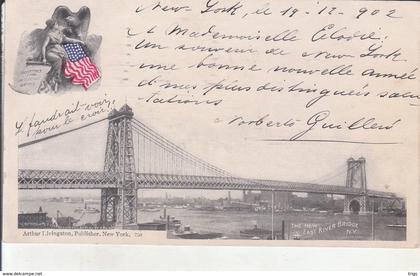 New-York, le 19-12-902
A Mademoiselle Elodie.
Un souvenir de New-York.
une bonne nouvelle année
et mes plus distinguées salu
tations
Norberto Guillen
Il faudrait voir
pour le croir
THE NEW
EAST RIVER BRIDGE
N.Y.
Arthur Livingston, Publisher, New York,